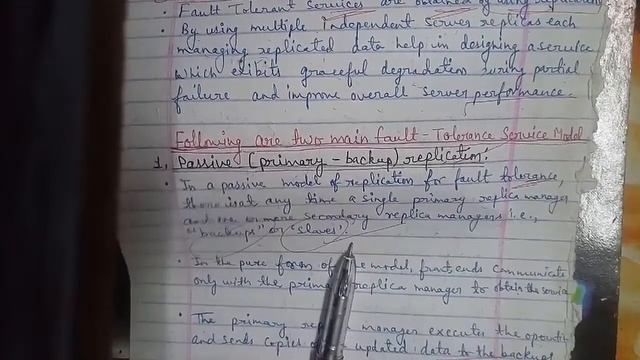 • Fault Tolerant Services are obtained by using replication
• By using multiple independent server replicas each
managing replicated data help in designing a service
which exibits graceful degradation during partial
failure and improve overall server performance.
Following are two main fault-Tolerance Service Model
1. Passive (primary-backup) replication:
• In a passive model of replication for fault tolerance,
there is at any time a single primary replica manager
and one or more secondary replica managers i.e.,
"backups" or "slaves".
• In the pure form of the model, front ends communicate
only with the primary replica manager to obtain the service
• The primary manager executes the operati
and sends copies updated data to the backups